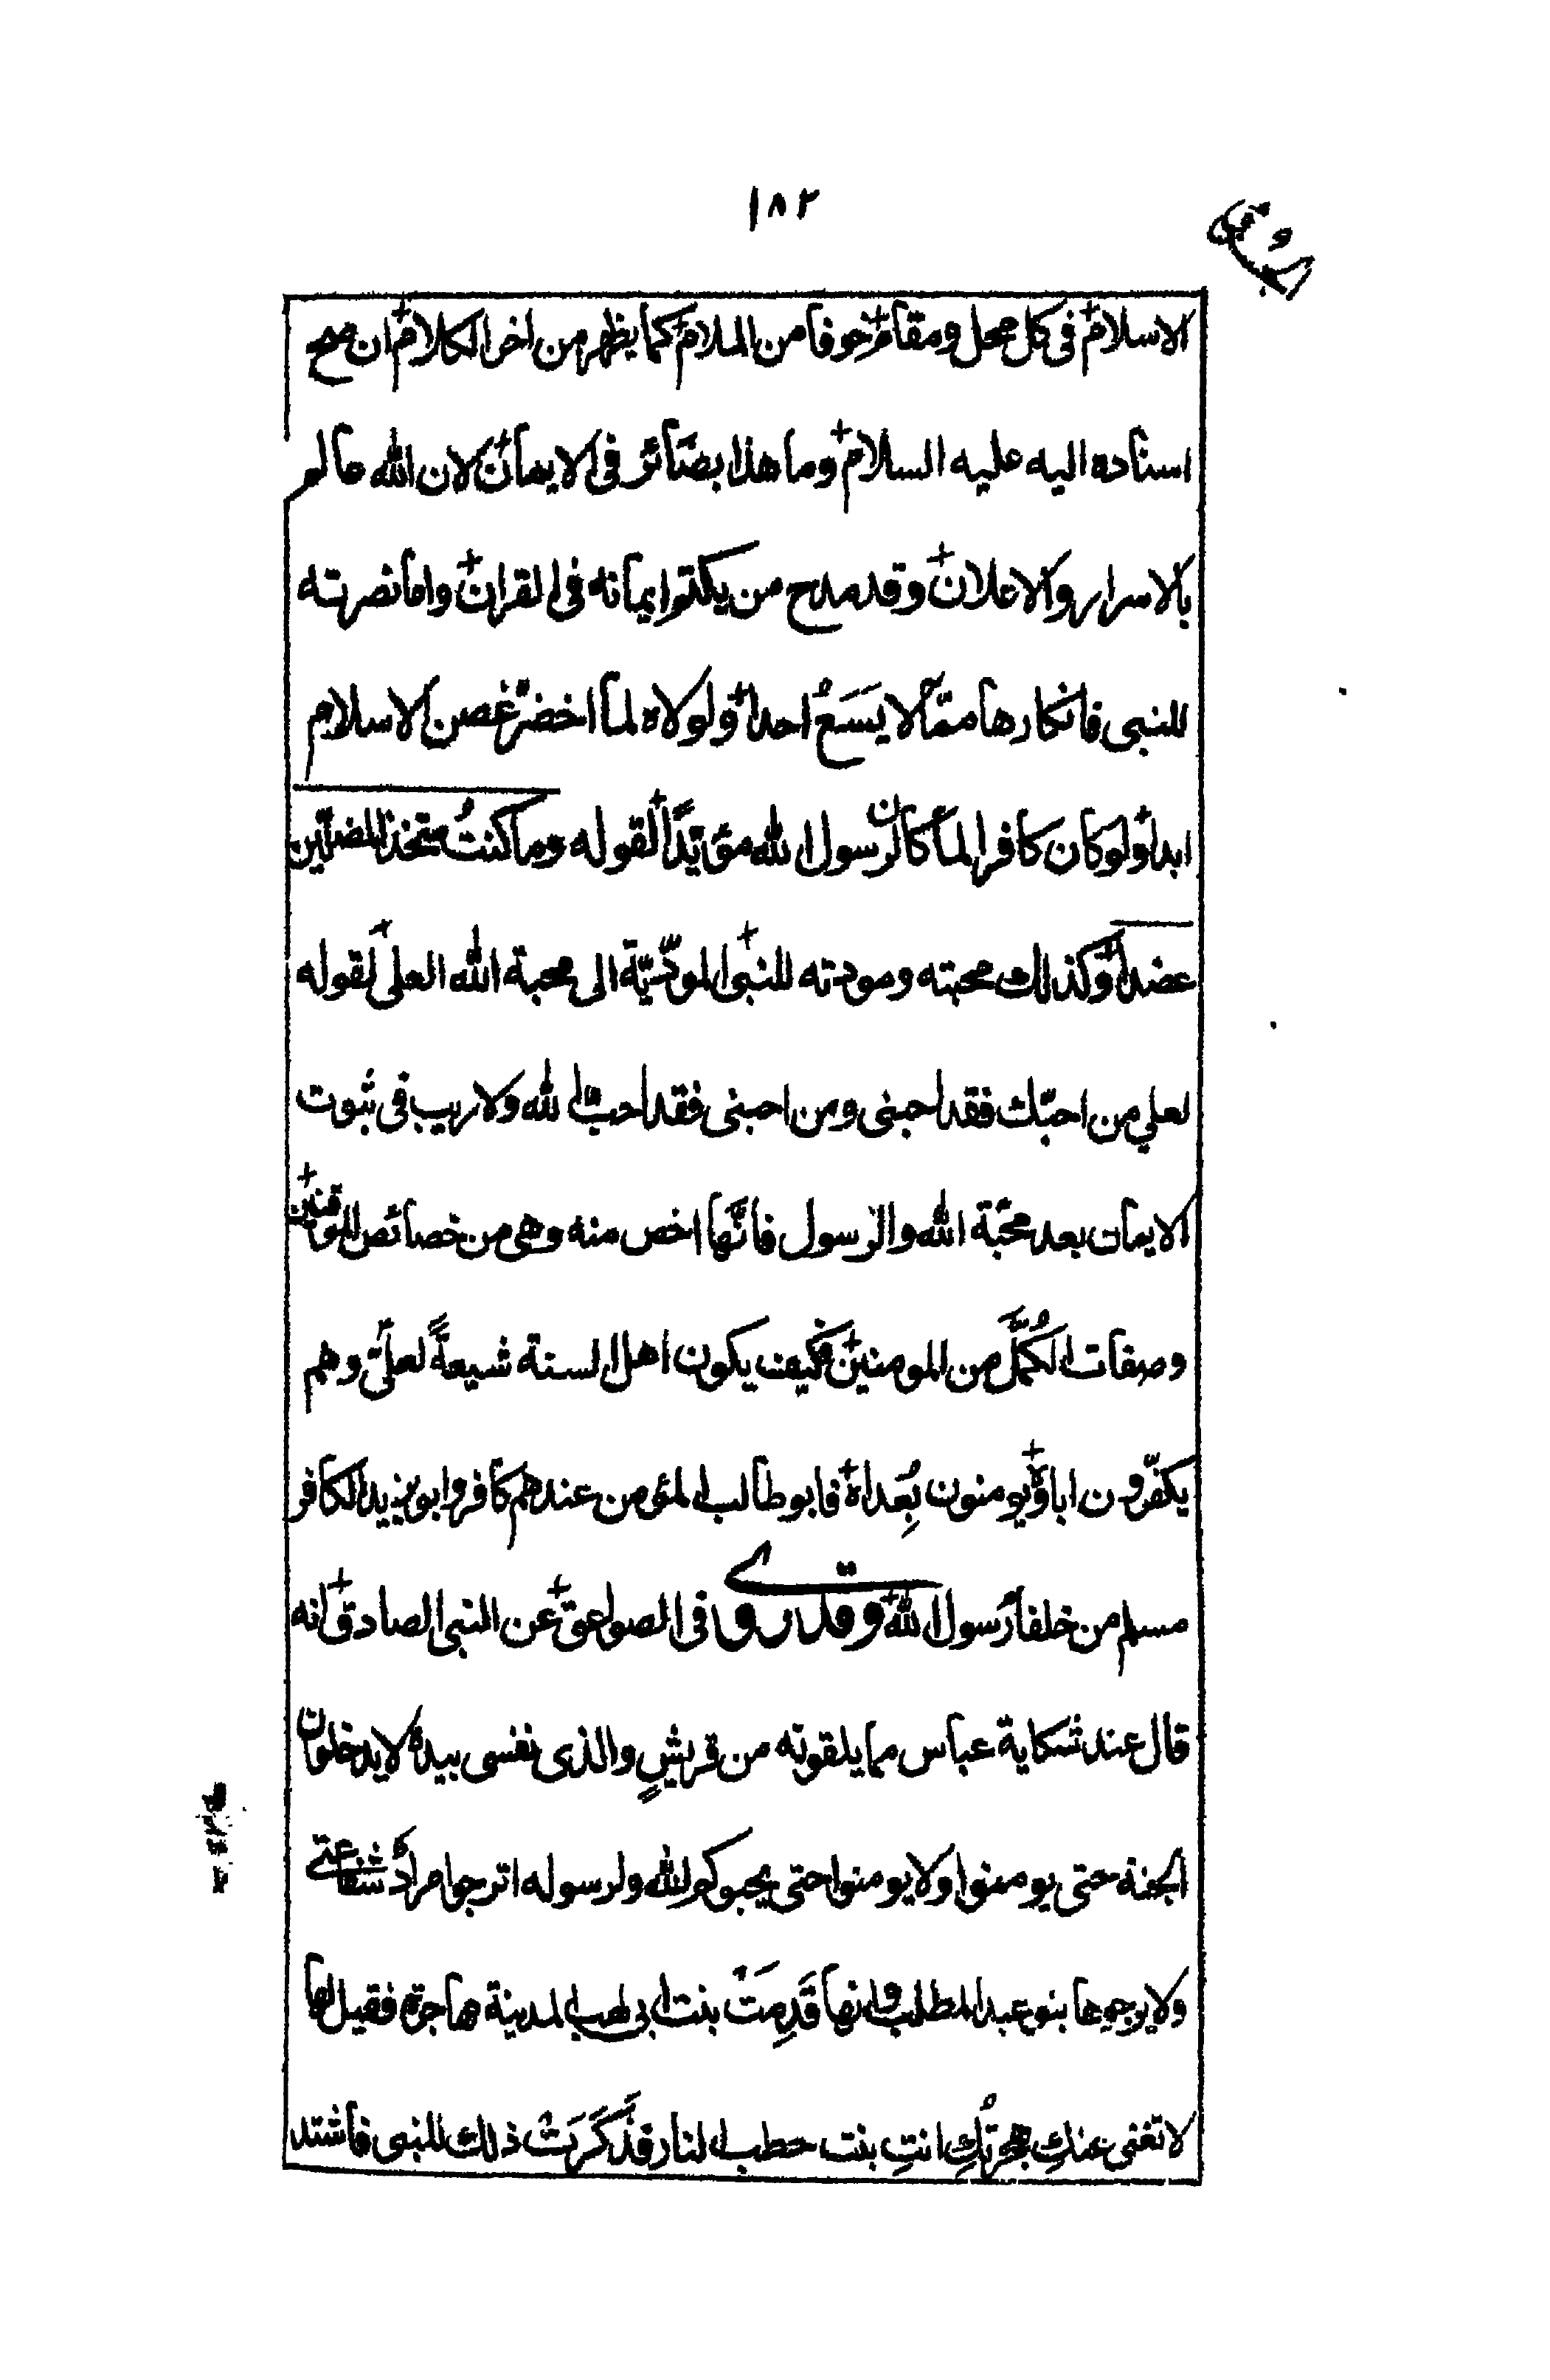 ١٨٢
الاسلام في كل محل ومقام خوفا من الملام كما يظهر من اخر الكلام ان صح
اسناده اليه عليه السلام وما هذا بضائر في الايمان لان الله عالم
بالاسرار والاعلان وقد مدح من يكتم ايمانه في القران واما نصرته
للنبي فانكارها ممّا لا يَسَعُ احدا ولولاه لما اخضرّ غصن الاسلام
ابدا ولو كان كافرا لما كان لرسول الله مؤيّدًا لقوله وما كنتُ متخذ المضلّين
عضدا وكذلك محبته ومودته للنبي المودّيّة الى محبة الله العلي لقوله
لعلي من احبّك فقد احبني ومن احبني فقد احبّ الله ولا ريب في ثبوت
الايمان بعد محبّة الله والرسول فانّها اخص منه وهي من خصائص الموقنين
وصفات الكُمَّل من المومنين فكيف يكون اهل السنة شيعةً لعليّ وهم
يكفّرون اباه ويومنون بِعُداه فابو طالب المؤمن عندهم كافر وابو يزيد الكافر
مسلم من خلفا رسول الله وقد روى في الصواعق عن النبي الصادق انه
قال عند شكاية عباس مما يلقونه من قريشٍ والذي نفسي بيده لا يدخلون
الجنة حتى يومنوا ولا يومنوا حتى يحبوكم لله ولرسوله اترجوا مراد شفاعتي
ولا يرجوها بنو عبد المطلب وانها قَدِمَتْ بنت ابي لهب المدينة مهاجرة فقيل لها
لا تغني عنكِ هجرتُكِ انتِ بنت حطب النار فذَكَرَتْ ذلك للنبي فاشتد